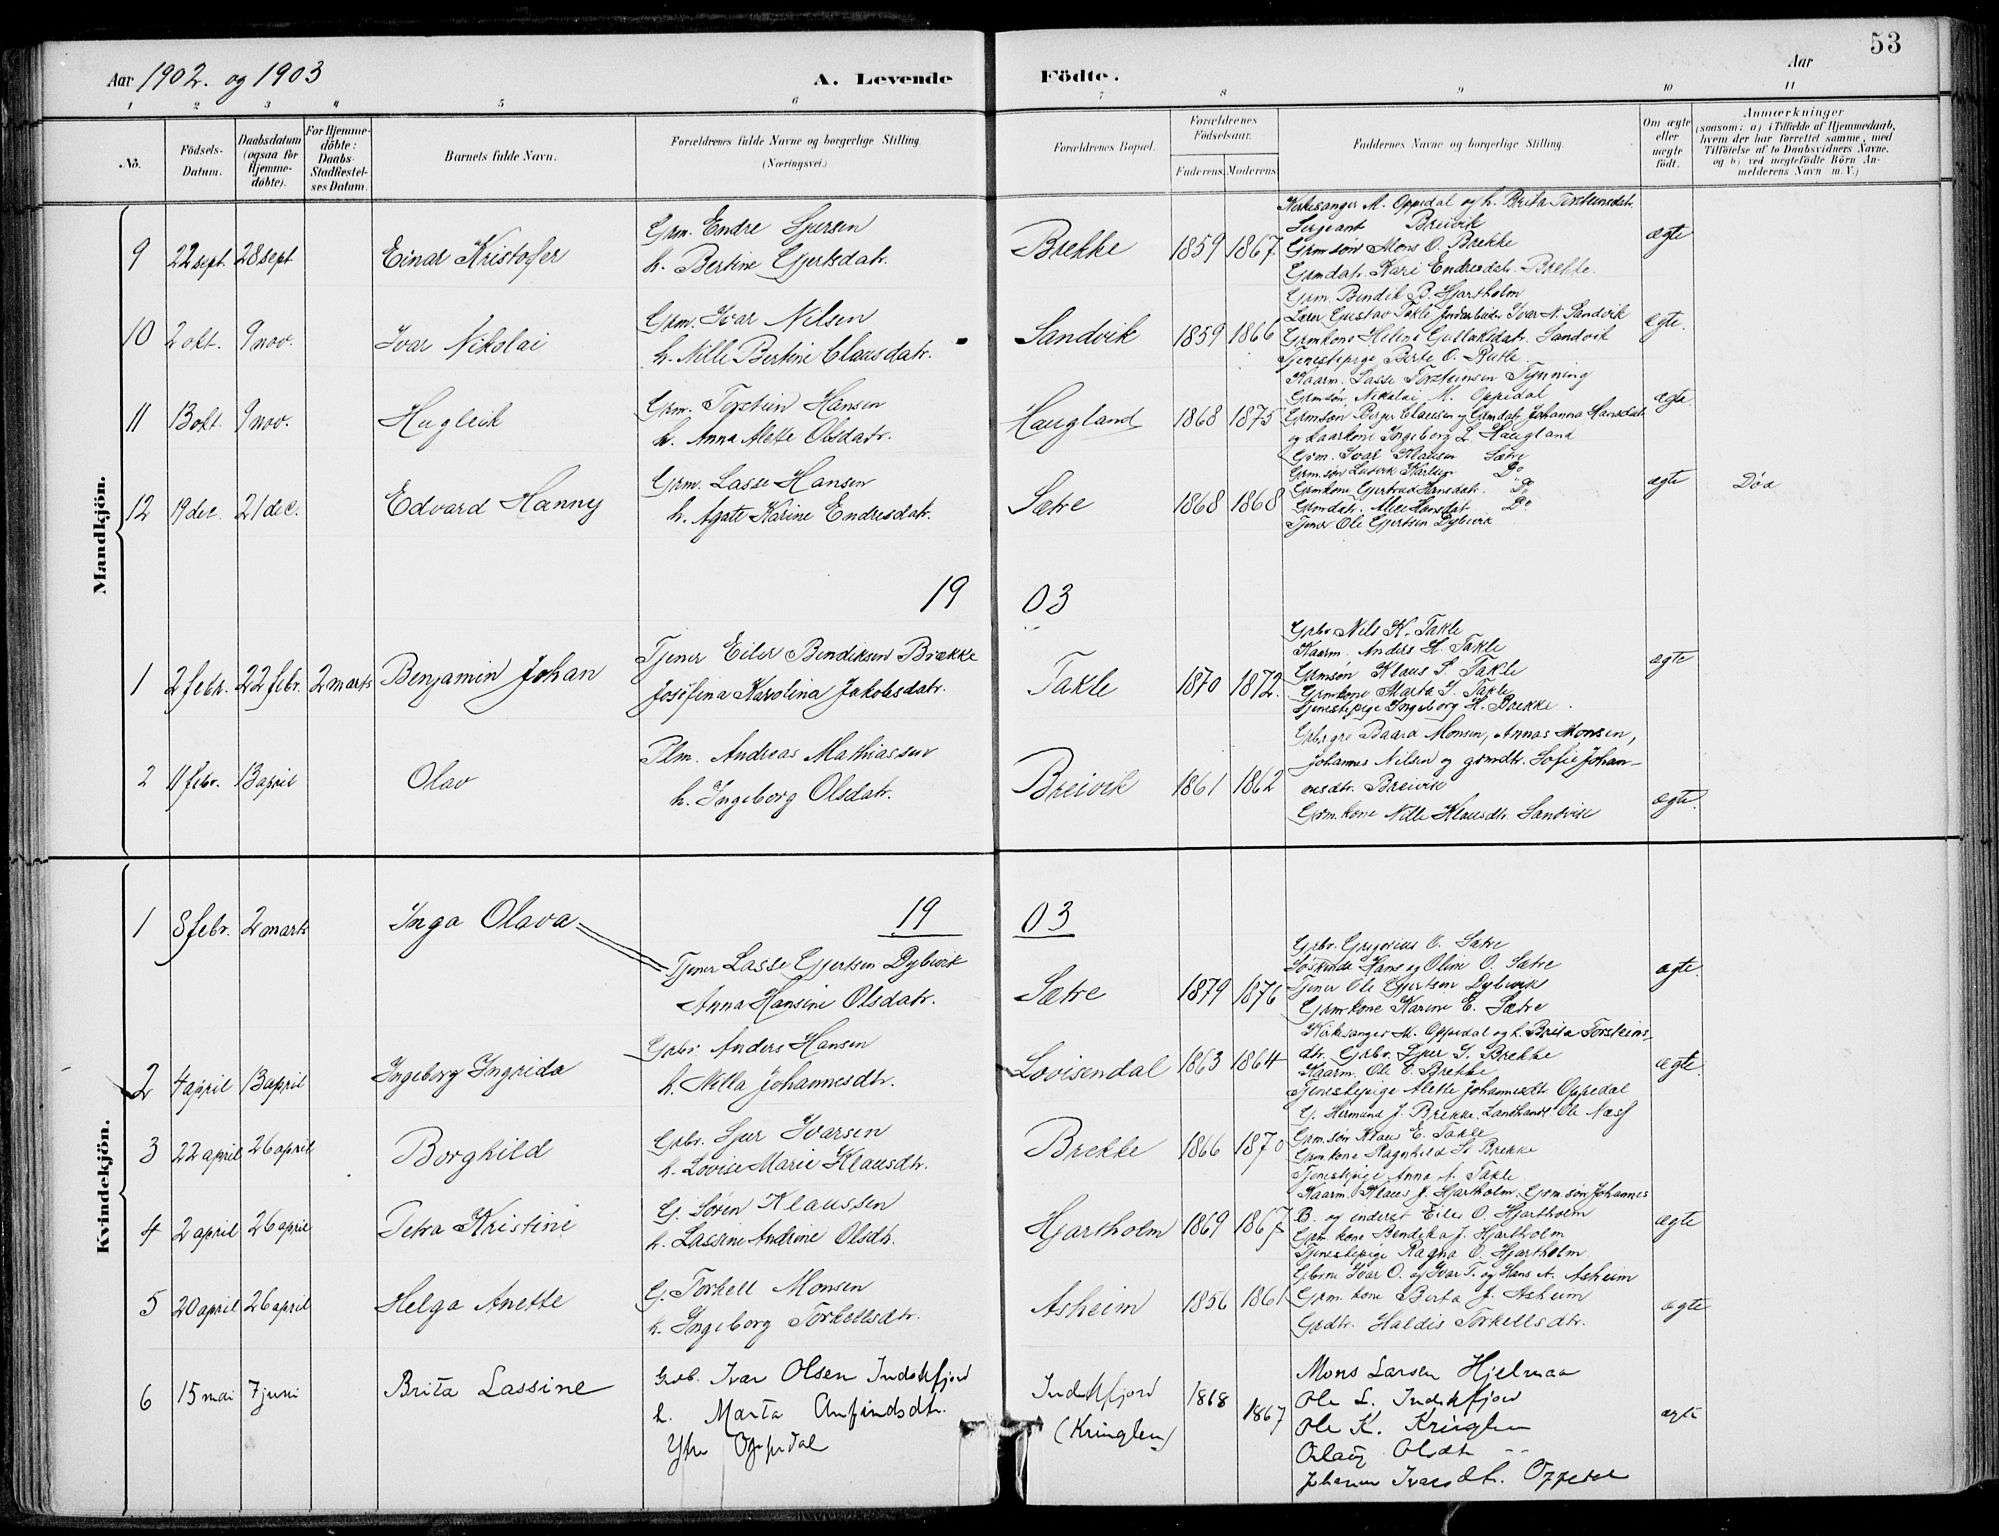 53
Aar 1902. og 1903
A. Levende
Födte.
Aar
1 2 3 4 5 6 7 8 9 10 11
No.
Födsels-Datum.
Daabsdatum (ogsaa for Hjemme-döbte).
For Hjemme-döbte: Daabs-Stadfæstel-ses Datum.
Barnets fulde Navn.
Forældrenes fulde Navne og borgerlige Stilling
(Næringsvei.)
Forældrenes Bopæl.
Forældrenes Födselsaar.
Faderens. Moderens.
Faddernes Navne og borgerlige Stilling.
Om ægte eller uægte födt.
Anmærkninger
(saasom: a) i Tilfælde af Hjemmedaab, hvem der har forrettet samme, med Tilföielse af to Daabsvidners Navne, og b) ved uægtefödte Börn An-melderens Navn m. V.)
Mandkjön.
9 22 sept. 28 sept. Einar Kristofer
Grm. Endre Sjursen
h. Bertine Gjertsdatr.
Brekke 1859 1867
Kirkesanger M. Oppedal og h. Brita Torsteinsdatr.
Sergeant Breivik
Grmsøn Mons O. Brekke
Grmdatr. Kari Endresdatr. Brekke.
ægte
10 2 okt. 9 nov. Ivar Nikolai
Grm. Ivar Nilsen
h. Nille Bertine Claesdatr.
Sandvik 1859 1866
Grm. Bendik B. Hjartholm
Lærer Gustav Takle Ivar N. Sandvik
Grmkone Helene Sandvik
Tjenestepige Berte O. Rutle.
ægte.
11 13 okt. 9 nov. Hugleik
Grm. Torstein Hansen
h. Anna Alette Olsdatr.
Haugland 1868 1875
Kaarm. Lasse Torsteinsen Tynning
Grmsøn Nikolai M. Oppedal
Grmsøn Birger Claessen og Grmdat. Johanna Hansdat.
og kaarkone Ingeborg L. Haugland
ægte.
12 19 dec. 21 dec. Edvard Hanny
Grm. Lasse Hansen
h. Agate Karine Endresdatr.
Sætre 1868 1868
Grm. Ivar Klausen Sætre
Grm.søn Ludvik Karlsen Do
Grmkone Gjertrud Hansdatr. Do
Grmdatr. Alice Hansdat Do
Tjener Ole Gjertsen Dybevik
ægte Død
19 03
1 2 febr. 22 febr. 2 marts Benjamin Johan
Tjener Eiler Bendiksen Brække
Josefina Karolina Jakobsdatr.
Takle 1870 1872.
Grbr Nils K. Takle
Kaarm. Anders H. Takle
Grmsøn Klaus S. Takle
Grmkone Marta I. Takle
Tjenestepige Ingeborg H. Brekke.
ægte
2 11 febr. 13 april Olav
Plm. Andreas Mathiassen
h. Ingeborg Olsdatr.
Breivik 1861 1862
Grbrgre Baard Monsen, Annas Monsen,
Johannes Nilsen og grmdtr. Sofie Johan-
nesdtr. Breivik
Grm.kone Nille Klausdtr. Sandvik
ægte.
Kvindekjön.
19 03
1 8 febr. 2 marts Inga Olava
Tjener Lasse Gjertsen Dybevik
Anna Hansine Olsdatr.
Sætre 1879 1876
Grbr. Gregorius O. Sætre
Søskende Hans og Oline O. Sætre
Tjener Ole Gjertsen Dybevik
Grmkone Karine E. Sætre
ægte.
2 4 april 13 april Ingeborg Ingrida
Grbr. Anders Hansen
h. Nilla Johannesdtr.
Lovisendal 1863 1864
Kirksanger M. Oppedal og h. Brita Torsteins-
dtr. Grbr. Sjur I. Brekke
Kaarm. Ole O. Brekke
Tjenestepige Alette Johannesdtr Oppedal
ægte.
3 22 april 26 april Borghild
Grbr. Sjur Ivarsen
h. Lovise Marie Klausdtr.
Brekke 1866 1870
G. Hermund J. Brekke. Landhandl. Ole Næss
Grm.søn Klaus E. Takle
Grmkone Ragnhild S. Brekke
Tjenestepige Anna A. Takle
4 2 april 26 april Petra Kristine
G. Søren Klaussen
h. Lassine Andrine Olsdtr.
Hjartholm 1869 1867
Kaarm. Klaus J. Hjartholm. Grm.søn Johannes
B. og inderst Eiler O. Hjartholm
Grm.kone Bendika J. Hjartholm
Tjenestepige Ragna O. Hjartholm.
ægte
5 20 april 26 april Helga Anette
G. Torkell Monsen
h. Ingeborg Torkellsdtr.
Asheim 1856 1861
Gbrne Ivar O. og Ivar T. og Hans A. Asheim
Grm.kone Berta J. Asheim
Grdtr. Haldis Torkellsdtr.
ægte
6 15 mai 7 juni Brita Lassine
Grdb. Ivar Olsen Indrefjord
h. Marta Anfindsdtr.
Ytre Oppedal
Indrefjord
(Kringlen)
1868 1867
Mons Larsen Hjelmaa
Ole L. Indrefjord
Ole K. Kringlen
Olaug Olsdtr
Johanne Ivarsdtr. Oppedal
ægte